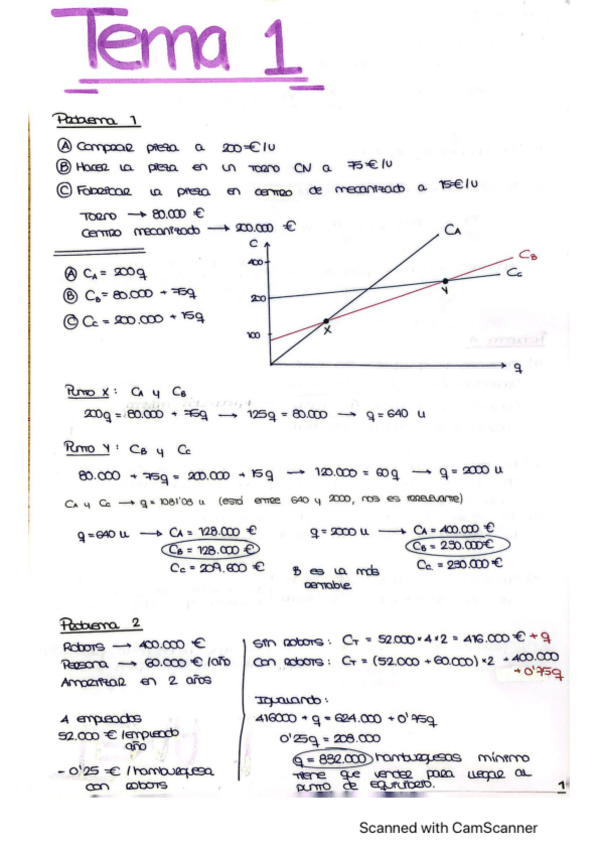 Tema 1
Problema 1
Ⓐ Comprar pieza a 200 €/u
Ⓑ Hacer la pieza en un torno CN a 75 €/u
Ⓒ Fabricar la pieza en centro de mecanizado a 15 €/u
Torno → 80.000 €
Centro mecanizado → 200.000 €
Ⓐ CA = 200q
Ⓑ CB = 80.000 + 75q
Ⓒ Cc = 200.000 + 15q
C
400
200
100
CA
CB
Cc
X
Y
q
Punto X: CA y CB
200q = 80.000 + 75q → 125q = 80.000 → q = 640 u
Punto Y: CB y Cc
80.000 + 75q = 200.000 + 15q → 120.000 = 60q → q = 2000 u
CA y Cc → q = 1081'08 u (está entre 640 y 2000, nos es irrelevante)
q = 640 u → CA = 128.000 €
CB = 128.000 €
Cc = 209.600 €
q = 2000 u → CA = 400.000 €
CB = 230.000 €
Cc = 230.000 €
B es la más
rentable
Problema 2
Robots → 400.000 €
Persona → 60.000 €/año
Amortizar en 2 años
4 empleados
52.000 €/empleado
año
- 0'25 €/hamburguesa
con robots
Sin robots: CT = 52.000·4·2 = 416.000 € + q
Con robots: CT = (52.000 + 60.000)·2 + 400.000
+ 0'75q
Igualando:
416000 + q = 624.000 + 0'75q
0'25q = 208.000
q = 832.000 hamburguesas mínimo
tiene que vender para llegar al
punto de equilibrio.
1
Scanned with CamScanner